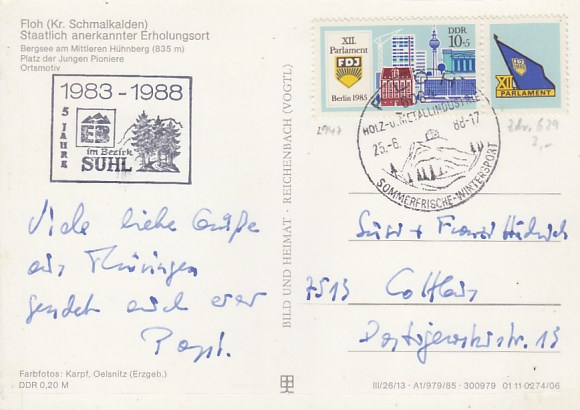 Floh (Kr. Schmalkalden)
Staatlich anerkannter Erholungsort
Bergsee am Mittleren Hühnberg (835 m)
Platz der Jungen Pioniere
Ortsmotiv
1983-1988
5 JAHRE
EB
im Bezirk
SUHL
XII.
Parlament
FDJ
Berlin 1985
DDR
10+5
XII
PARLAMENT
HOLZ-U. METALLINDUSTRIE
25.-6. 88-17
SOMMERFRISCHE-WINTERSPORT
Viele liebe Grüße
aus Thüringen
sendet euch euer
BILD UND HEIMAT · REICHENBACH (VOGTL)
Susi + Franzi
7513 Cottbus
Dostojewskistr. 13
Farbfotos: Karpf, Oelsnitz (Erzgeb.)
DDR 0,20 M
III/26/13 · A1/979/85 · 300979 01 11 0274/06